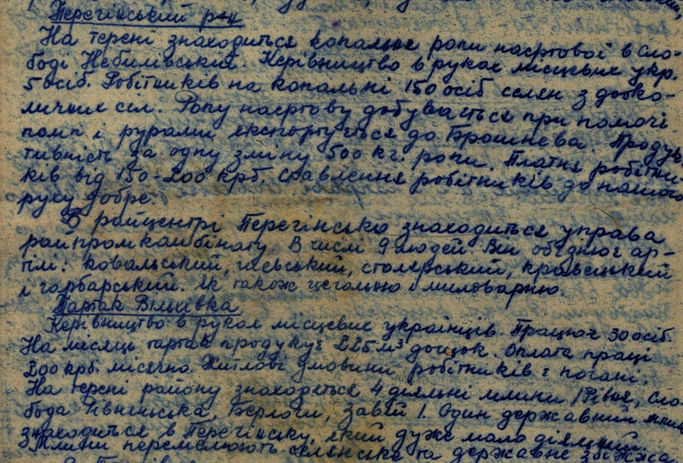 Перегінський р-н
На терені знаходиться копальня ропи насртової в сло-
боді Небилівській. Керівництво в руках місцевих укр.
5 осіб. Робітників на копальні 150 осіб селян з довко-
личних сіл. Ропу насртову добувається при помочі
помп і рурами експортується до Брошнева. Продук-
тивність за одну зміну 500 кг. ропи. Платня робітни-
ків від 150-200 крб. Ставлення робітників до нашого
руху добре.
В райцентрі Перегінсько знаходиться управа
райпромкомбінату. В числі 9 людей. Він обєднює ар-
тілі: ковальський, столярський, кравецький
і гарбарський. Як також цегольню і миловарню.
Тартак Вільхівка
Керівництво в руках місцевих українців. Працює 30 осіб.
На місяць тартак продукує 225 м³ дощок. Оплата праці
200 крб. місячно. Житлові умовини робітників є погані.
На терені району знаходяться 4 діяльні млини /Рівня, сло-
бода Рівненська, Берлоги, Завій/. Один державний млин
знаходиться в Перегінську, який дуже мало діяльний.
Млини перемелюють селянське та державне збіжжа.